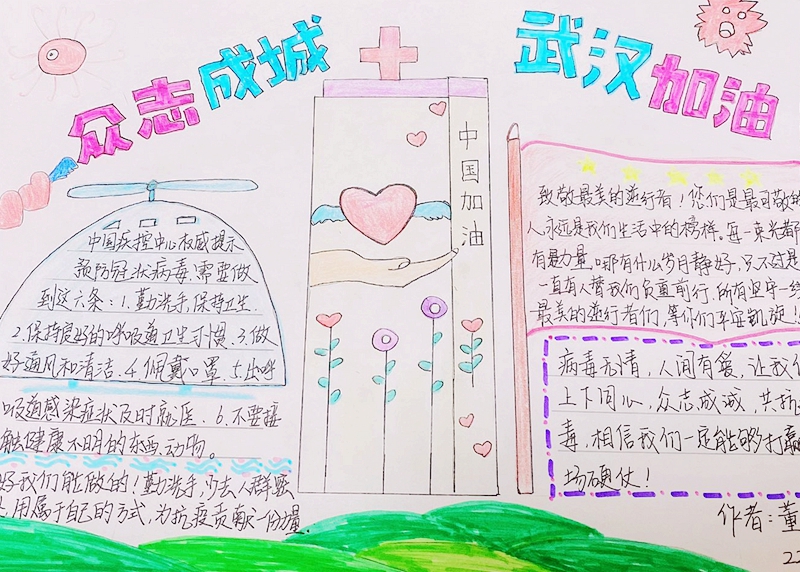 众志成城
武汉加油
中国加油
中国疾控中心权威提示
预防冠状病毒,需要做
到这六条:1.勤洗手,保持卫生.
2.保持良好的呼吸道卫生习惯.3.做
好通风和清洁.4.佩戴口罩.5.出呼
吸道感染症状及时就医.6.不要接
触健康不明的东西,动物。
好我们能做的!勤洗手,少去人群聚
用属于自己的方式,为抗疫贡献一份力量.
致敬最美的逆行者!您们是最可敬的
人,永远是我们生活中的榜样。每一束光都
有是力量,哪有什么岁月静好,只不过是
一直有人替我们负重前行.所有坚守一线
最美的逆行者们,等你们平安凯旋!
病毒无情,人间有爱.让我们
上下同心,众志成诚,共抗
毒,相信我们一定能够打赢
场硬仗!
作者:董